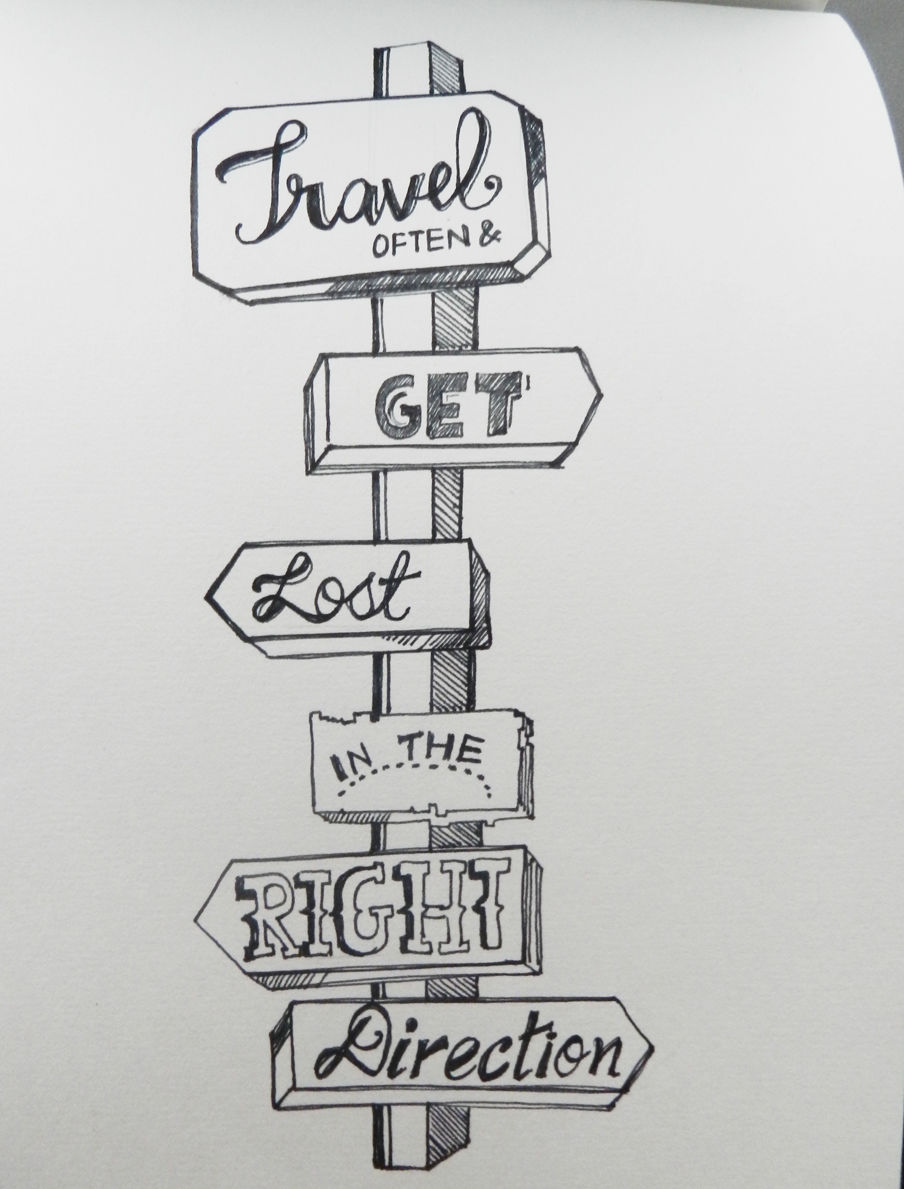 Travel
OFTEN &
GET
Lost
IN THE
RIGHT
Direction